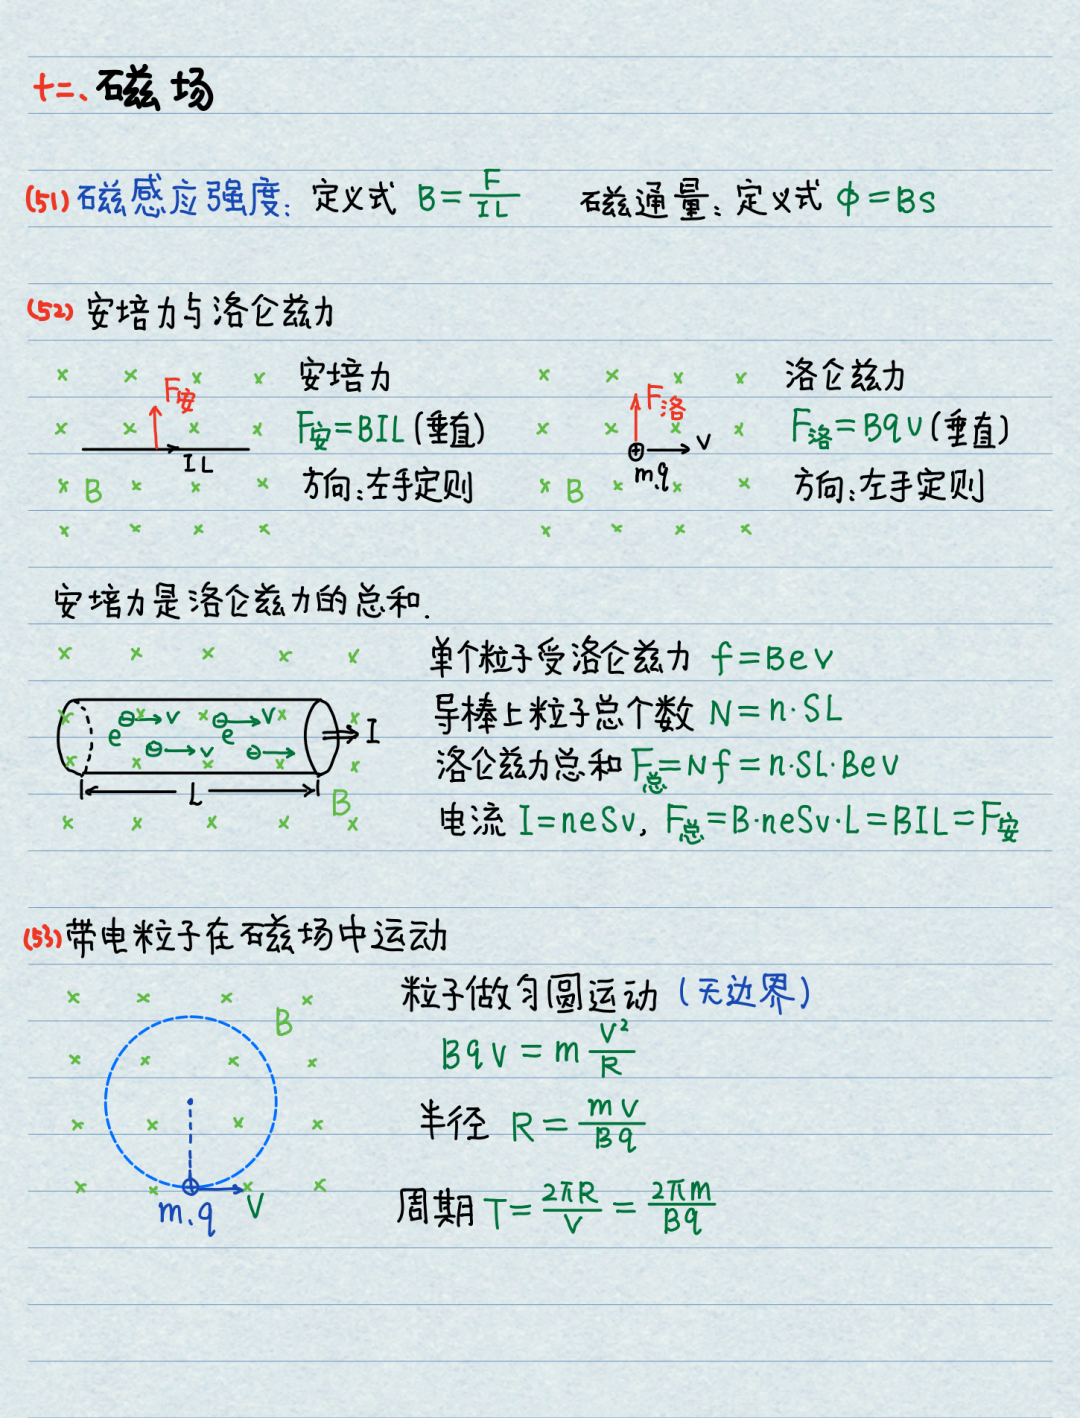 十二、磁场
(51) 磁感应强度：定义式 B=F/IL 磁通量：定义式 Φ=BS
(52) 安培力与洛仑兹力
F安
IL
B
安培力
F安=BIL(垂直)
方向：左手定则
F洛
v
m.q
B
洛仑兹力
F洛=Bqv(垂直)
方向：左手定则
安培力是洛仑兹力的总和.
e v e v
v
I
L
B
单个粒子受洛仑兹力 f=Bev
导棒上粒子总个数 N=n·SL
洛仑兹力总和 F总=Nf=n·SL·Bev
电流 I=neSv, F总=B·neSv·L=BIL=F安
(53) 带电粒子在磁场中运动
B
m.q
V
粒子做匀圆运动（无边界）
Bqv=m v²/R
半径 R=mv/Bq
周期 T=2πR/v=2πm/Bq